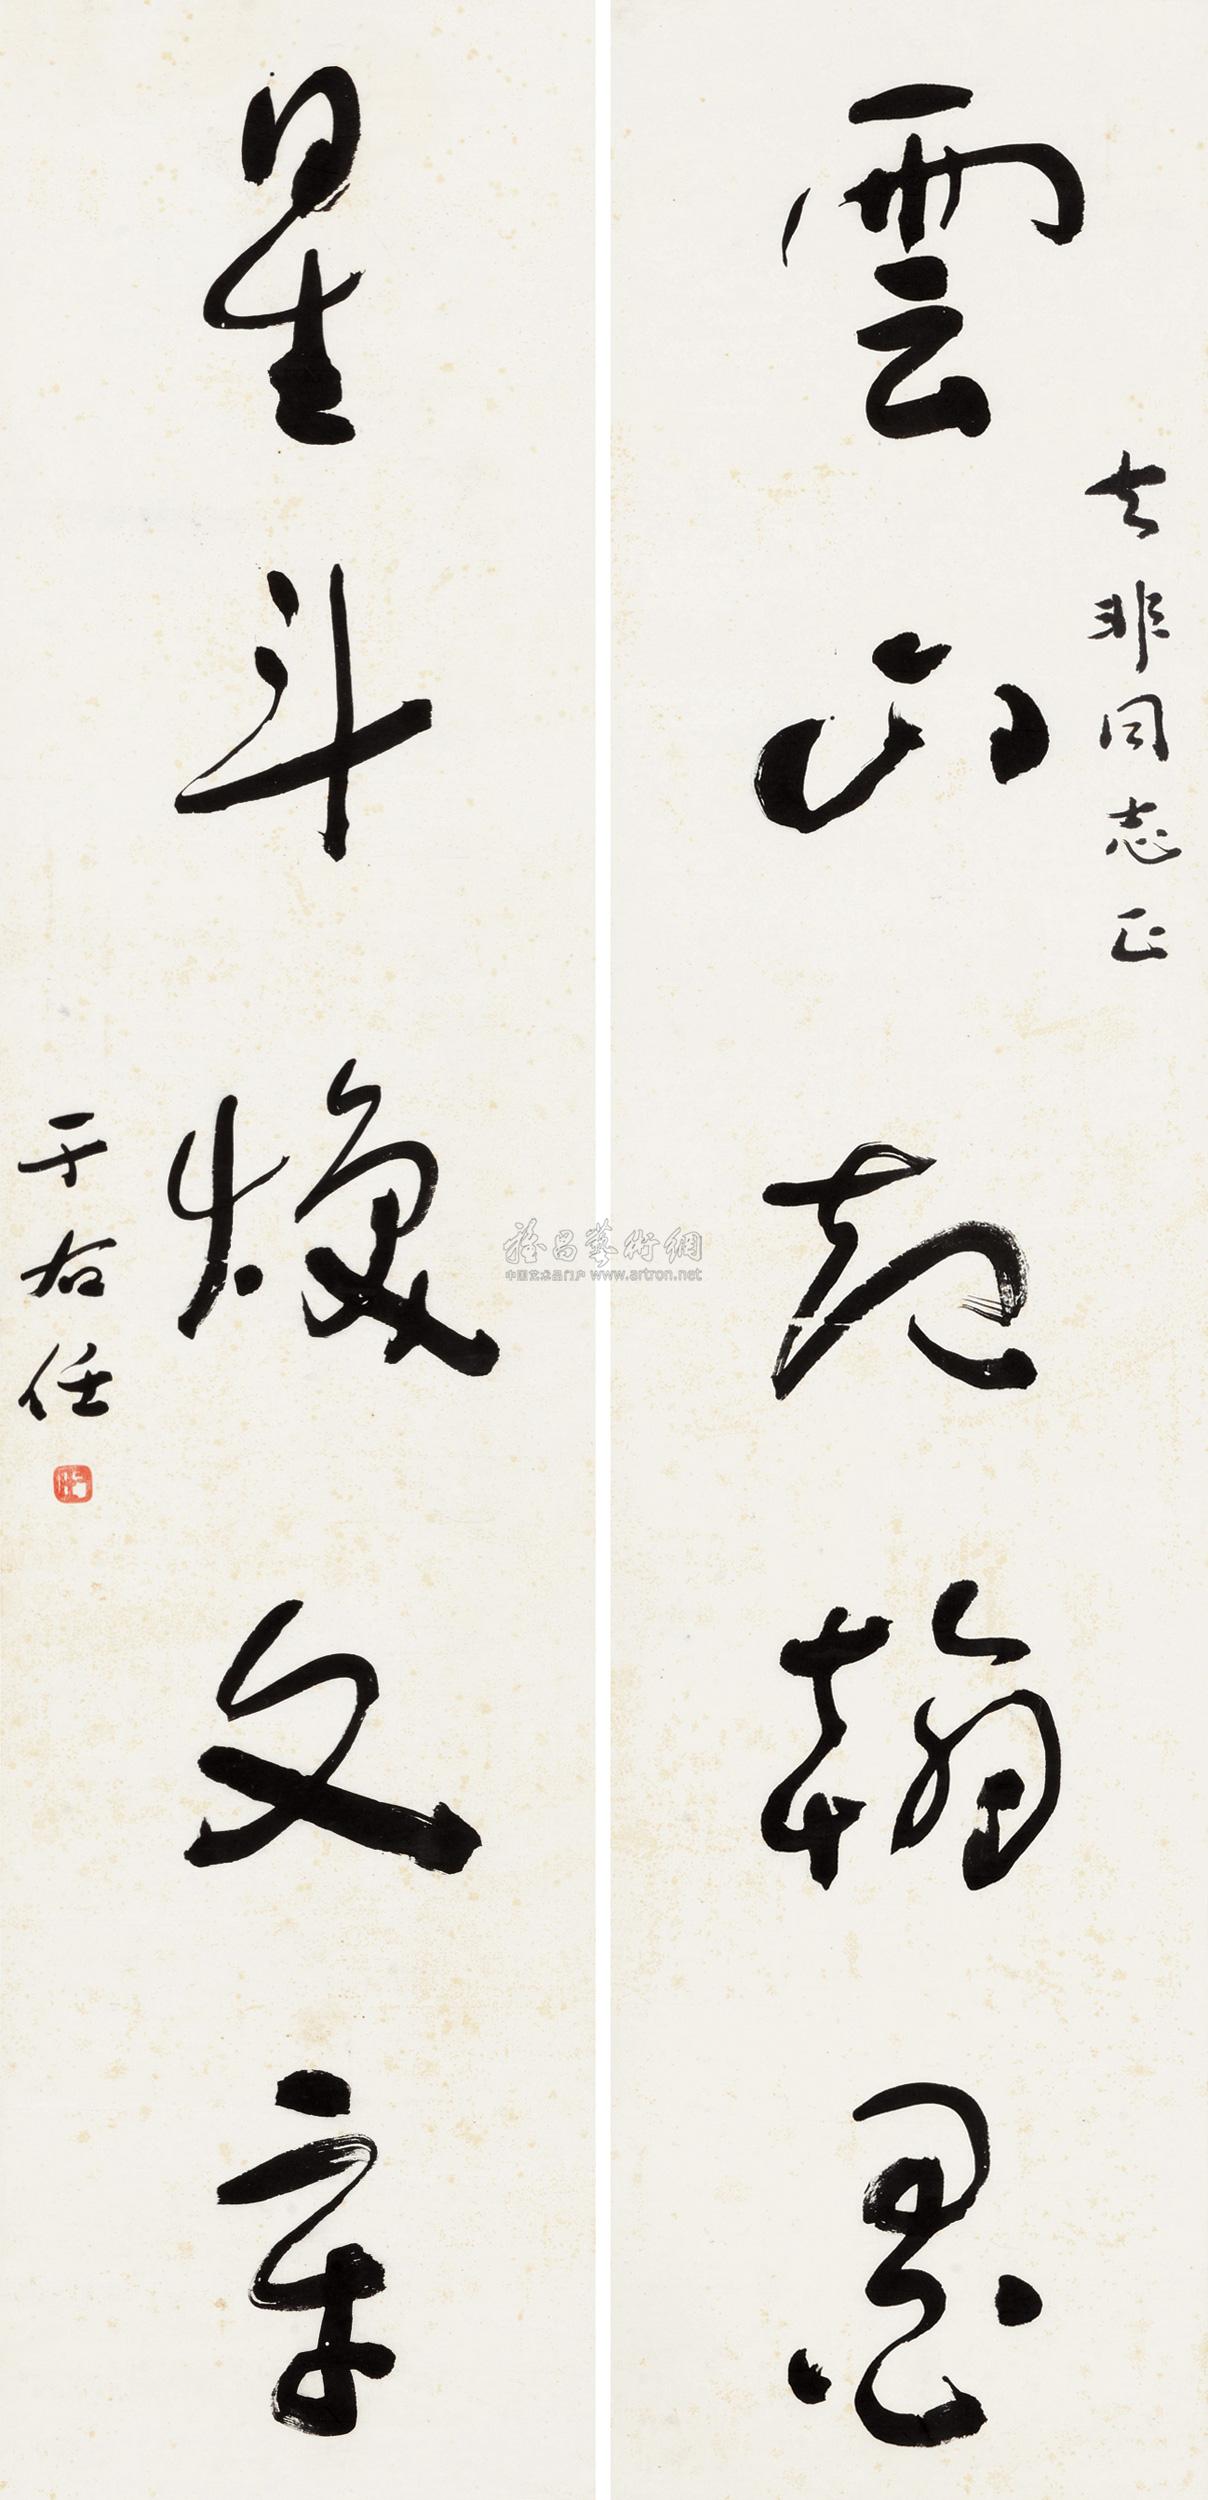 去非同志正
雲山起翰墨
星斗煥文章
于右任
雅昌藝術網
中国艺术品门户 www.artron.net